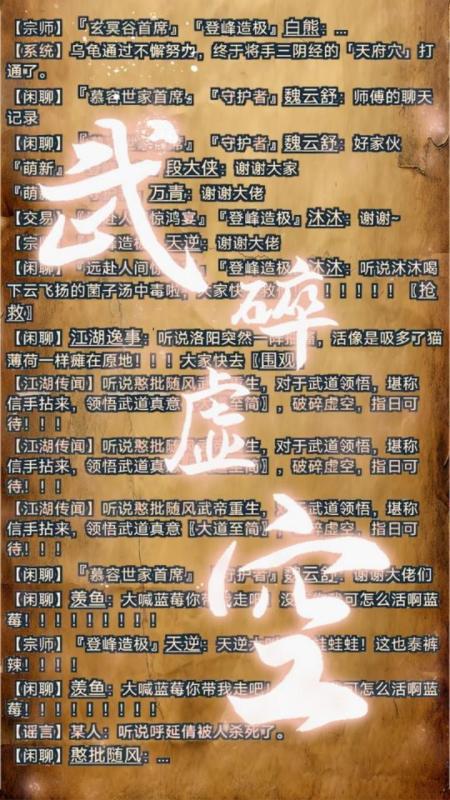 【宗师】『玄冥谷首席』『登峰造极』白熊：...
【系统】乌龟通过不懈努力，终于将手三阴经的「天府穴」打
通了。
【闲聊】『慕容世家首席』『守护者』魏云舒：师傅的聊天
记录
【闲聊】『守护者』魏云舒：好家伙
『萌新』段大侠：谢谢大家
『萌 万青：谢谢大佬
【交易】 人惊鸿宴』『登峰造极』沐沐：谢谢~
【宗 峰造极』天逆：谢谢大佬
【闲聊】『远赴人间惊 『登峰造极』沐沐：听说沐沐喝
下云飞扬的菌子汤中毒啦，大家快 救 ！！！！！！〖抢
救〗
【闲聊】江湖逸事：听说洛阳突然一阵 ，活像是吸多了猫
薄荷一样瘫在原地！！！大家快去〖围观
【江湖传闻】听说憨批随风武帝重生，对于武道领悟，堪称
信手拈来，领悟武道真意〖大道至简〗，破碎虚空，指日可
待！！！
【江湖传闻】听说憨批随风武帝重生，对于武道领悟，堪称
信手拈来，领悟武道真意〖大道至简〗，破碎虚空，指日可
待！！！
【江湖传闻】听说憨批随风武帝重生，对于武道领悟，堪称
信手拈来，领悟武道真意〖大道至简〗，破碎虚空，指日可
待！！！
【闲聊】『慕容世家首席』『守护者』魏云舒：谢谢大佬们
【闲聊】羡鱼：大喊蓝莓你带我走吧！没 可怎么活啊蓝
莓！！！！！！！！！
【宗师】『登峰造极』天逆：天逆大 哇蛙蛙！这也泰裤
辣！！！！
【闲聊】羡鱼：大喊蓝莓你带我走吧！没 可怎么活啊蓝
莓！！！！！！！！！
【谣言】某人：听说呼延倩被人杀死了。
【闲聊】憨批随风：...
武碎虚空